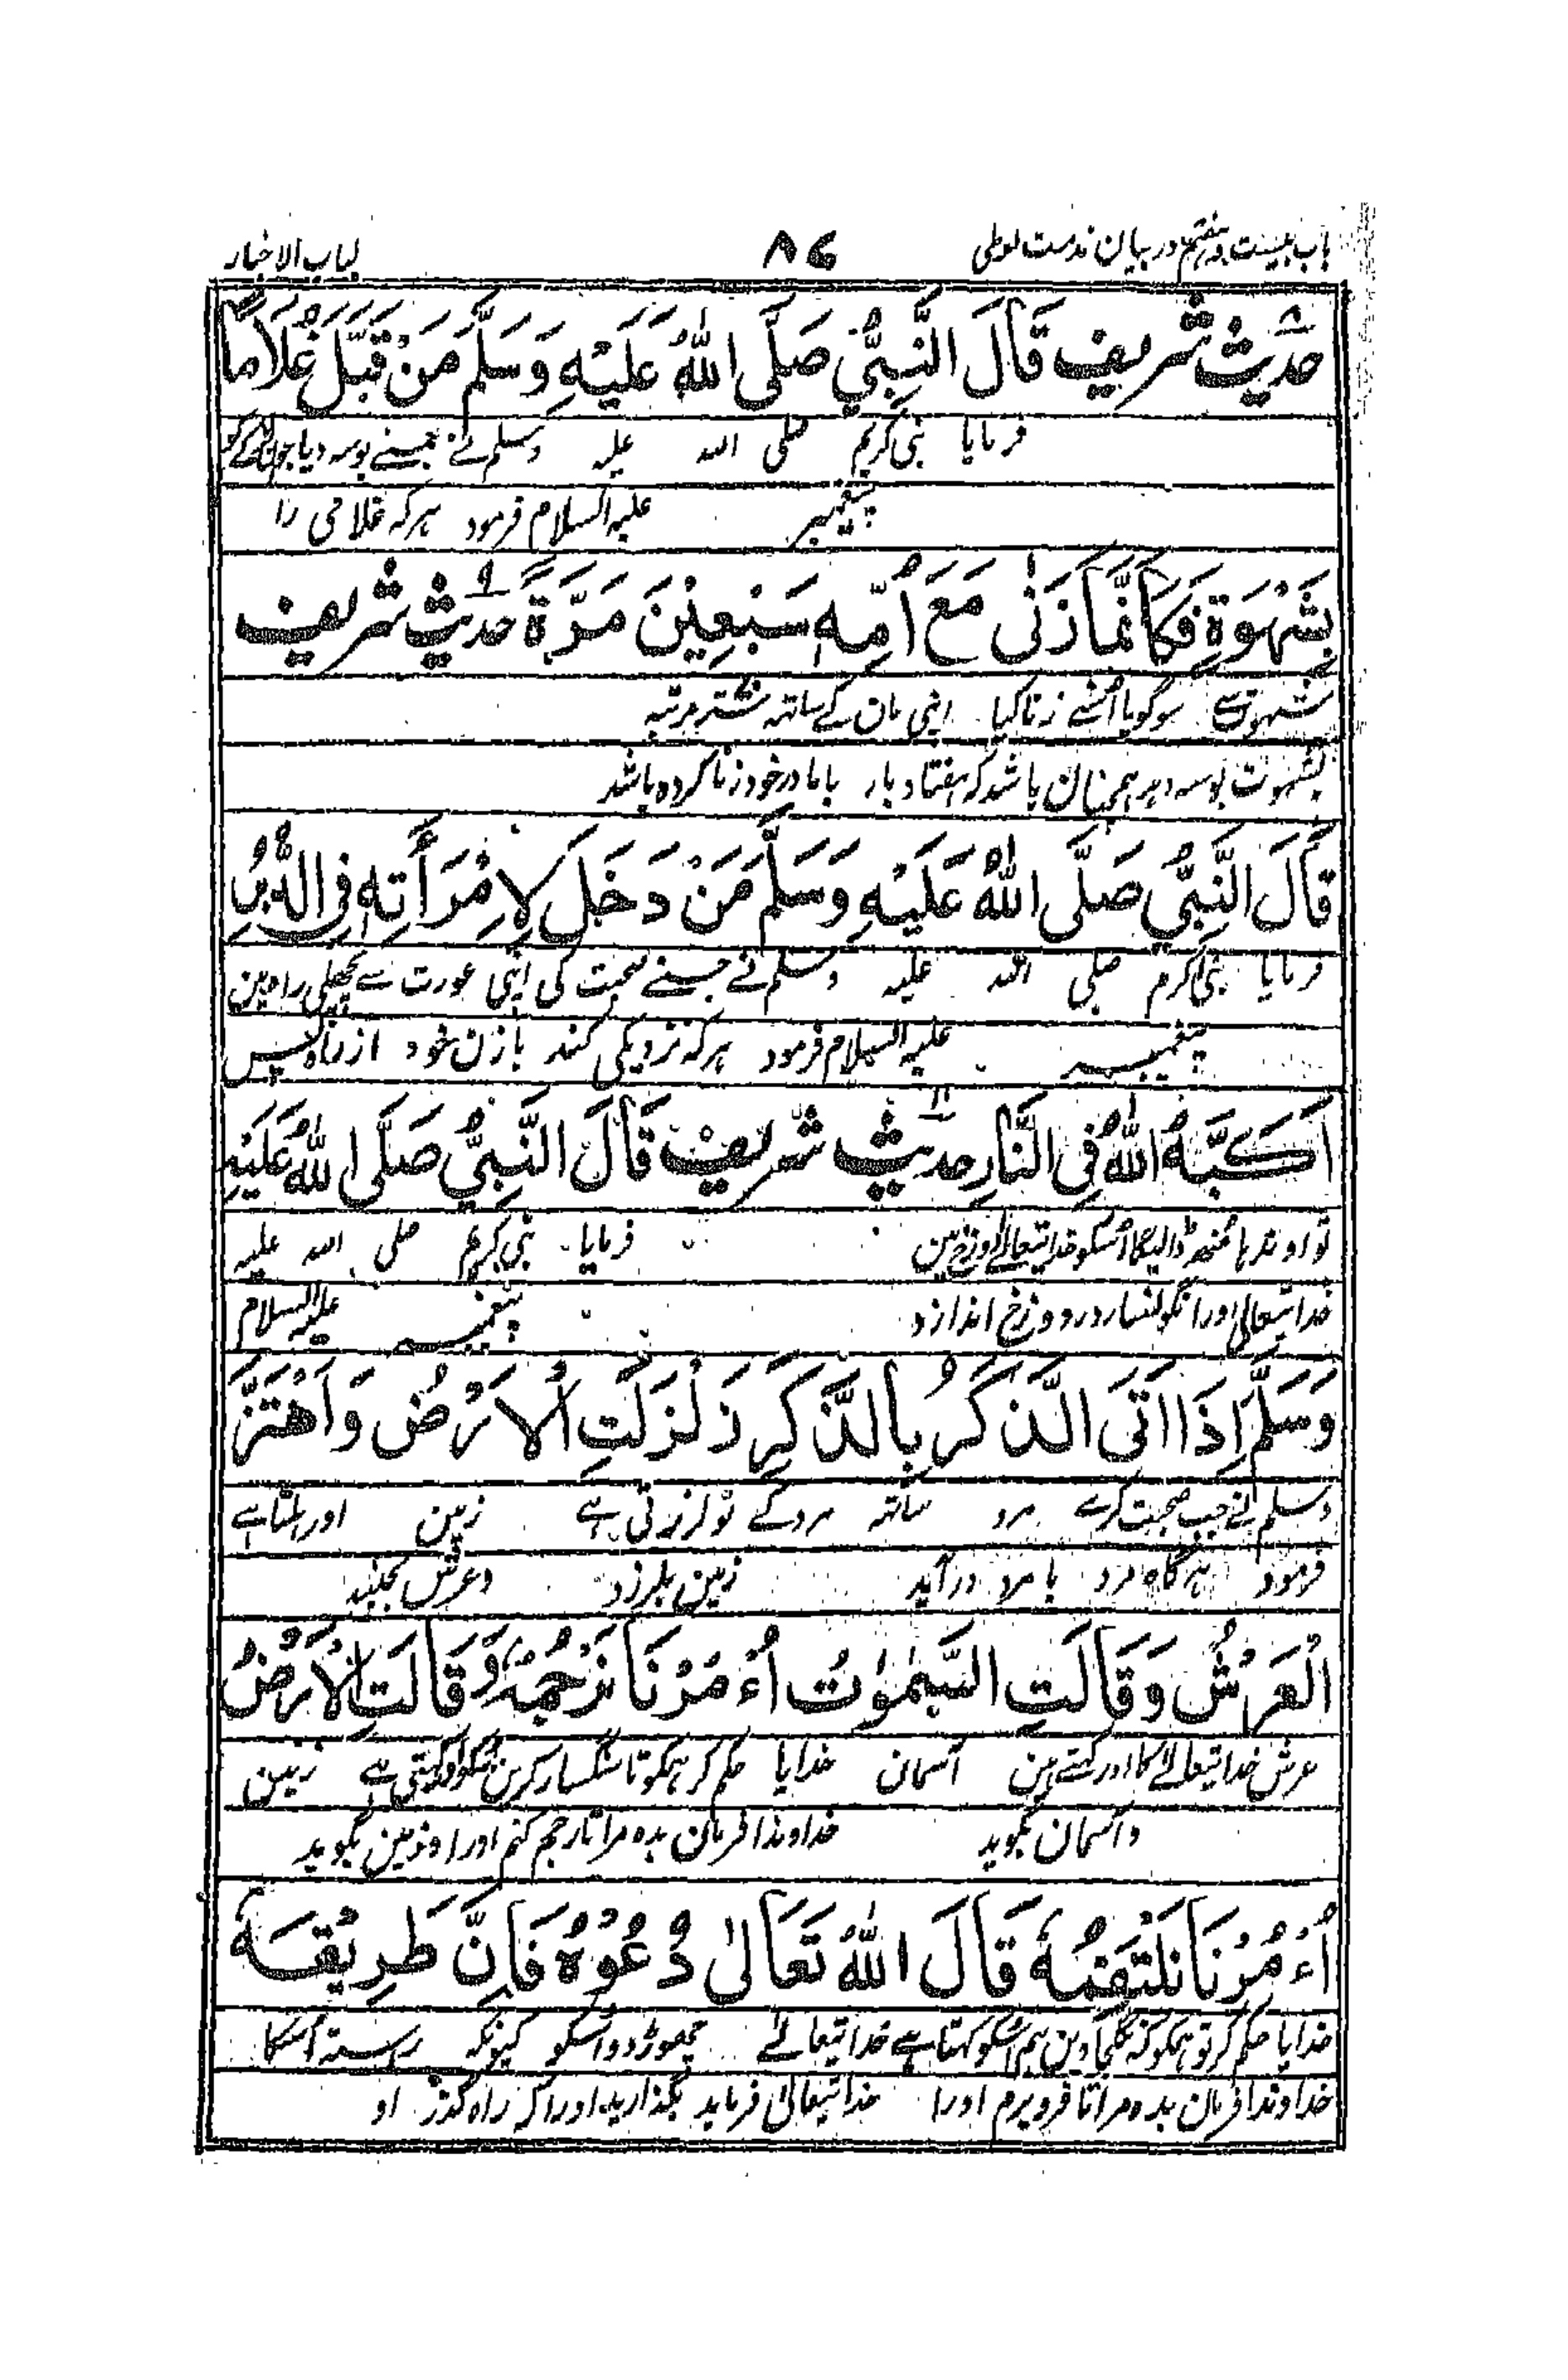 باب بیست و ہفتم در بیان مذمت لوطی ۸۶ لباب الاخبار
حَدِیْث شریف قَالَ النَّبِیُّ صَلَّی اللهُ عَلَیْهِ وَسَلَّمَ مَنْ قَبَّلَ غُلَامًا
فرمایا نبی کریم صلی اللہ علیہ وسلم نے جسنے بوسہ دیا
پیغمبر علیہ السلام فرمود ہر کہ غلامی را
بِشَهْوَةٍ فَكَاَنَّمَا زَنٰی مَعَ اُمِّهٖ سَبْعِیْنَ مَرَّةً ۹ حدیث شریف
شہوتسے سو گویا اُسنے زنا کیا اپنی مان کے ساتھ ستر مرتبہ
بشہوت بوسہ دہد ہمچنان باشد کہ ہفتاد بار با مادر خود زنا کردہ باشد
قَالَ النَّبِیُّ صَلَّی اللهُ عَلَیْهِ وَسَلَّمَ مَنْ دَخَلَ لِامْرَأَتِهٖ فِی الدُّبُرِ
فرمایا نبی اکرم صلی اللہ علیہ وسلم نے جسنے صحبت کی اپنی عورت سے پچھلی راہ مین
پیغمبر علیہ السلام فرمود ہر کہ نزدیکی کند با زن خود از راہ پس
اَكَبَّهُ اللهُ فِی النَّارِ حدیث شریف قَالَ النَّبِیُّ صَلَّی اللهُ عَلَیْهِ
تو اوندہا منھ ڈالیگا اُسکو خدایتعالے دوزخ مین فرمایا نبی کریم صلی اللہ علیہ
خدایتعالی اورا نگونسار در دوزخ اندازد پیغمبر علیہ السلام
وَسَلَّمَ اِذَا اَتَی الذَّكَرُ بِالذَّكَرِ زَلْزَلَتِ الْاَرْضُ وَاهْتَزَّ
وسلم نے جب صحبت کرے مرد ساتھ مرد کے تو لرزتی ہے زمین اور ہلتا ہے
فرمود ہرگاہ مرد با مرد درآید زمین بلرزد وعرش بجنبد
الْعَرْشُ وَقَالَتِ السَّمٰوٰتُ اُءْمُرْنَا نَرْجُمُهٗ وَقَالَتِ الْاَرْضُ
عرش خدایتعالے کا اور کہتے ہین آسمان خدایا حکم کر ہمکو تا سنگسار کرین ہم اسکو اور کہتی ہے زمین
وآسمان بگوید خداوندا فرمان بدہ مرا تا رجم کنم اورا وزمین بگوید
اُءْمُرْنَا نَلْتَقِمُهٗ قَالَ اللهُ تَعَالٰی دُعُوْهُ فَاِنَّ طَرِیْقَهٗ
خدایا حکم کر تو ہمکو کہ نگلجاوین ہم اسکو کہتا ہے خدایتعالے چھوڑدو اسکو کیونکہ رستہ اُسکا
خداوندا فرمان بدہ مرا تا فرو برم اورا خدایتعالی فرماید بگذارید اورا کہ راہ گذر او